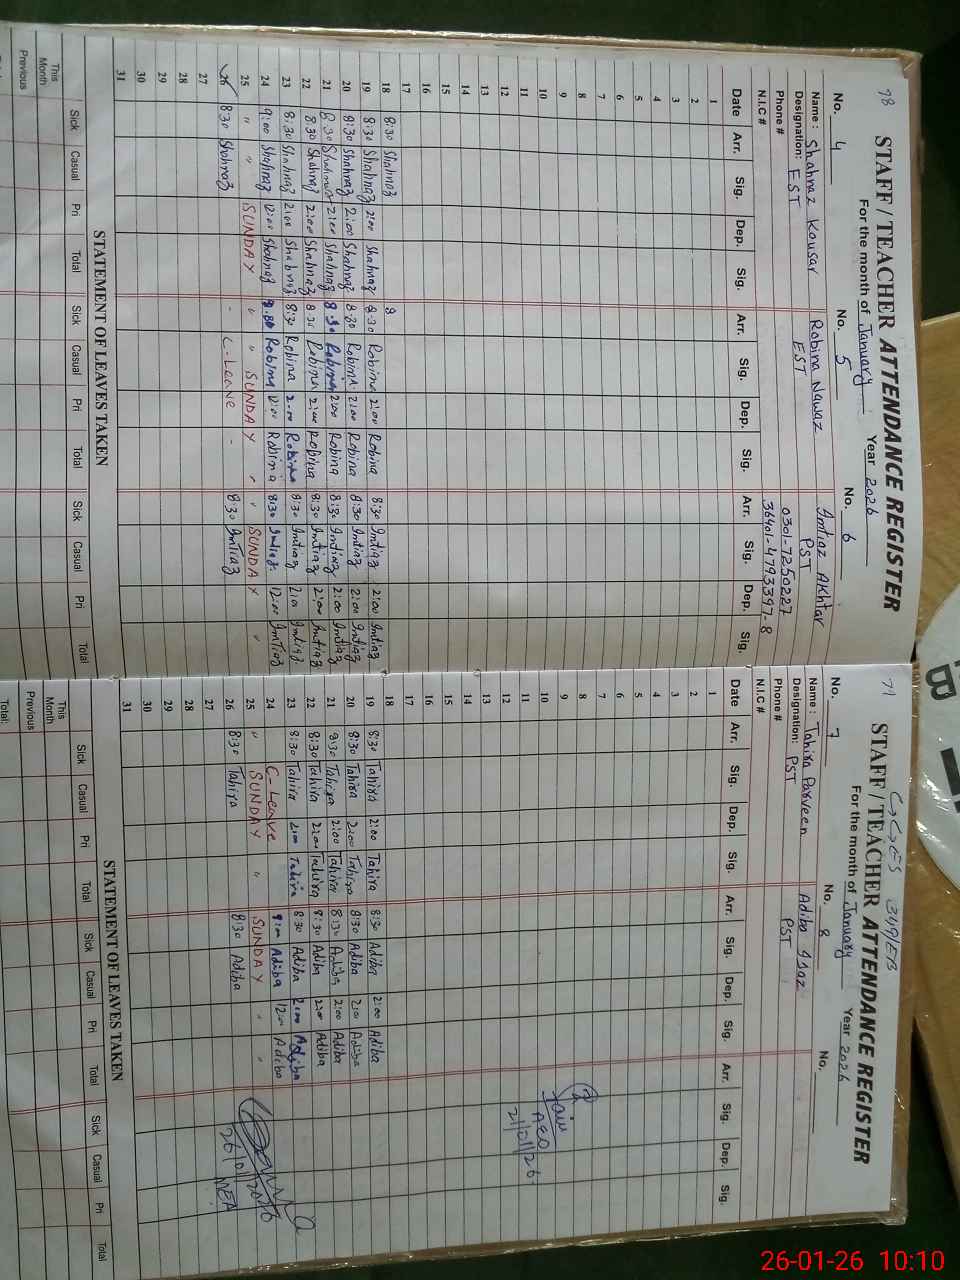 78
STAFF / TEACHER ATTENDANCE REGISTER
For the month of January Year 2026
No. 4 No. 5 No. 6
Name : Shahnaz Kousar Robina Nawaz Imtiaz Akhtar
Designation: EST EST PST
Phone # 0301-7250227
N.I.C # 36401-4793397-8
Date Arr. Sig. Dep. Sig. Arr. Sig. Dep. Sig. Arr. Sig. Dep. Sig.
1
2
3
4
5
6
7
8
9
10
11
12
13
14
15
16
17
18 8:30 Shahnaz 8
19 8:30 Shahnaz 2:00 Shahnaz 8:30 Robina 2:00 Robina 8:30 Imtiaz 2:00 Imtiaz
20 8:30 Shahnaz 2:00 Shahnaz 8:30 Robina 2:00 Robina 8:30 Imtiaz 2:00 Imtiaz
21 8:30 Shahnaz 2:00 Shahnaz 8:30 Robina 2:00 Robina 8:30 Imtiaz 2:00 Imtiaz
22 8:30 Shahnaz 2:00 Shahnaz 8:30 Robina 2:00 Robina 8:30 Imtiaz 2:00 Imtiaz
23 8:30 Shahnaz 2:00 Shahnaz 8:30 Robina 2:00 Robina 8:30 Imtiaz 2:00 Imtiaz
24 9:00 Shahnaz 12:00 Shahnaz Robina 12:00 Robina 8:30 Imtiaz 12:00 Imtiaz
25 " " SUNDAY " " SUNDAY " " SUNDAY "
26 8:30 Shahnaz - C-Leave - 8:30 Imtiaz
27
28
29
30
31
STATEMENT OF LEAVES TAKEN
Sick Casual Pri Total Sick Casual Pri Total Sick Casual Pri Total
This Month
Previous
71
GGES 349/EB
STAFF / TEACHER ATTENDANCE REGISTER
For the month of January Year 2026
No. 7 No. 8 No.
Name : Tahira Parveen Adiba Ijaz
Designation: PST PST
Phone #
N.I.C #
Date Arr. Sig. Dep. Sig. Arr. Sig. Dep. Sig. Arr. Sig. Dep. Sig.
1
2
3
4
5
6
7
8
9
10
11
12
13
14
15
16
17
18
19 8:30 Tahira 2:00 Tahira 8:30 Adiba 2:00 Adiba
20 8:30 Tahira 2:00 Tahira 8:30 Adiba 2:00 Adiba
21 8:30 Tahira 2:00 Tahira 8:30 Adiba 2:00 Adiba
22 8:30 Tahira 2:00 Tahira 8:30 Adiba 2:00 Adiba
23 8:30 Tahira 2:00 Tahira 8:30 Adiba 2:00 Adiba
24 C-Leave Adiba 12:00 Adiba
25 " SUNDAY " SUNDAY " "
26 8:30 Tahira 8:30 Adiba
27
28
29
30
31
AEO
21/01/26
26/01/2026
MEA
STATEMENT OF LEAVES TAKEN
Sick Casual Pri Total Sick Casual Pri Total Sick Casual Pri Total
This Month
Previous
Total:
B
26-01-26 10:10